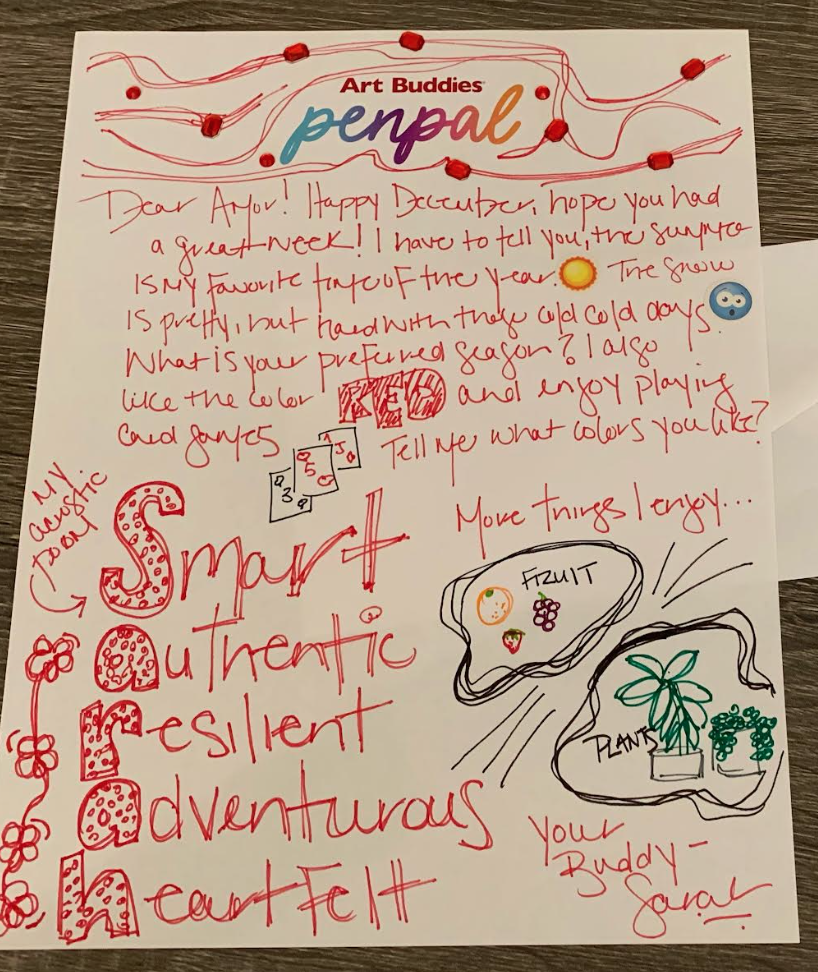 Art Buddies
penpal
Dear Amor! Happy December, hope you had
a great week! I have to tell you, the summer
is my favorite time of the year. The snow
is pretty, but hard with these cold cold days.
What is your preferred season? I also
like the color RED and enjoy playing
card games
3
5
J
Tell me what colors you like?
My
acrostic
poem
Smart
authentic
resilient
adventurous
heartfelt
More things I enjoy...
FRUIT
PLANTS
Your
Buddy-
Sarah